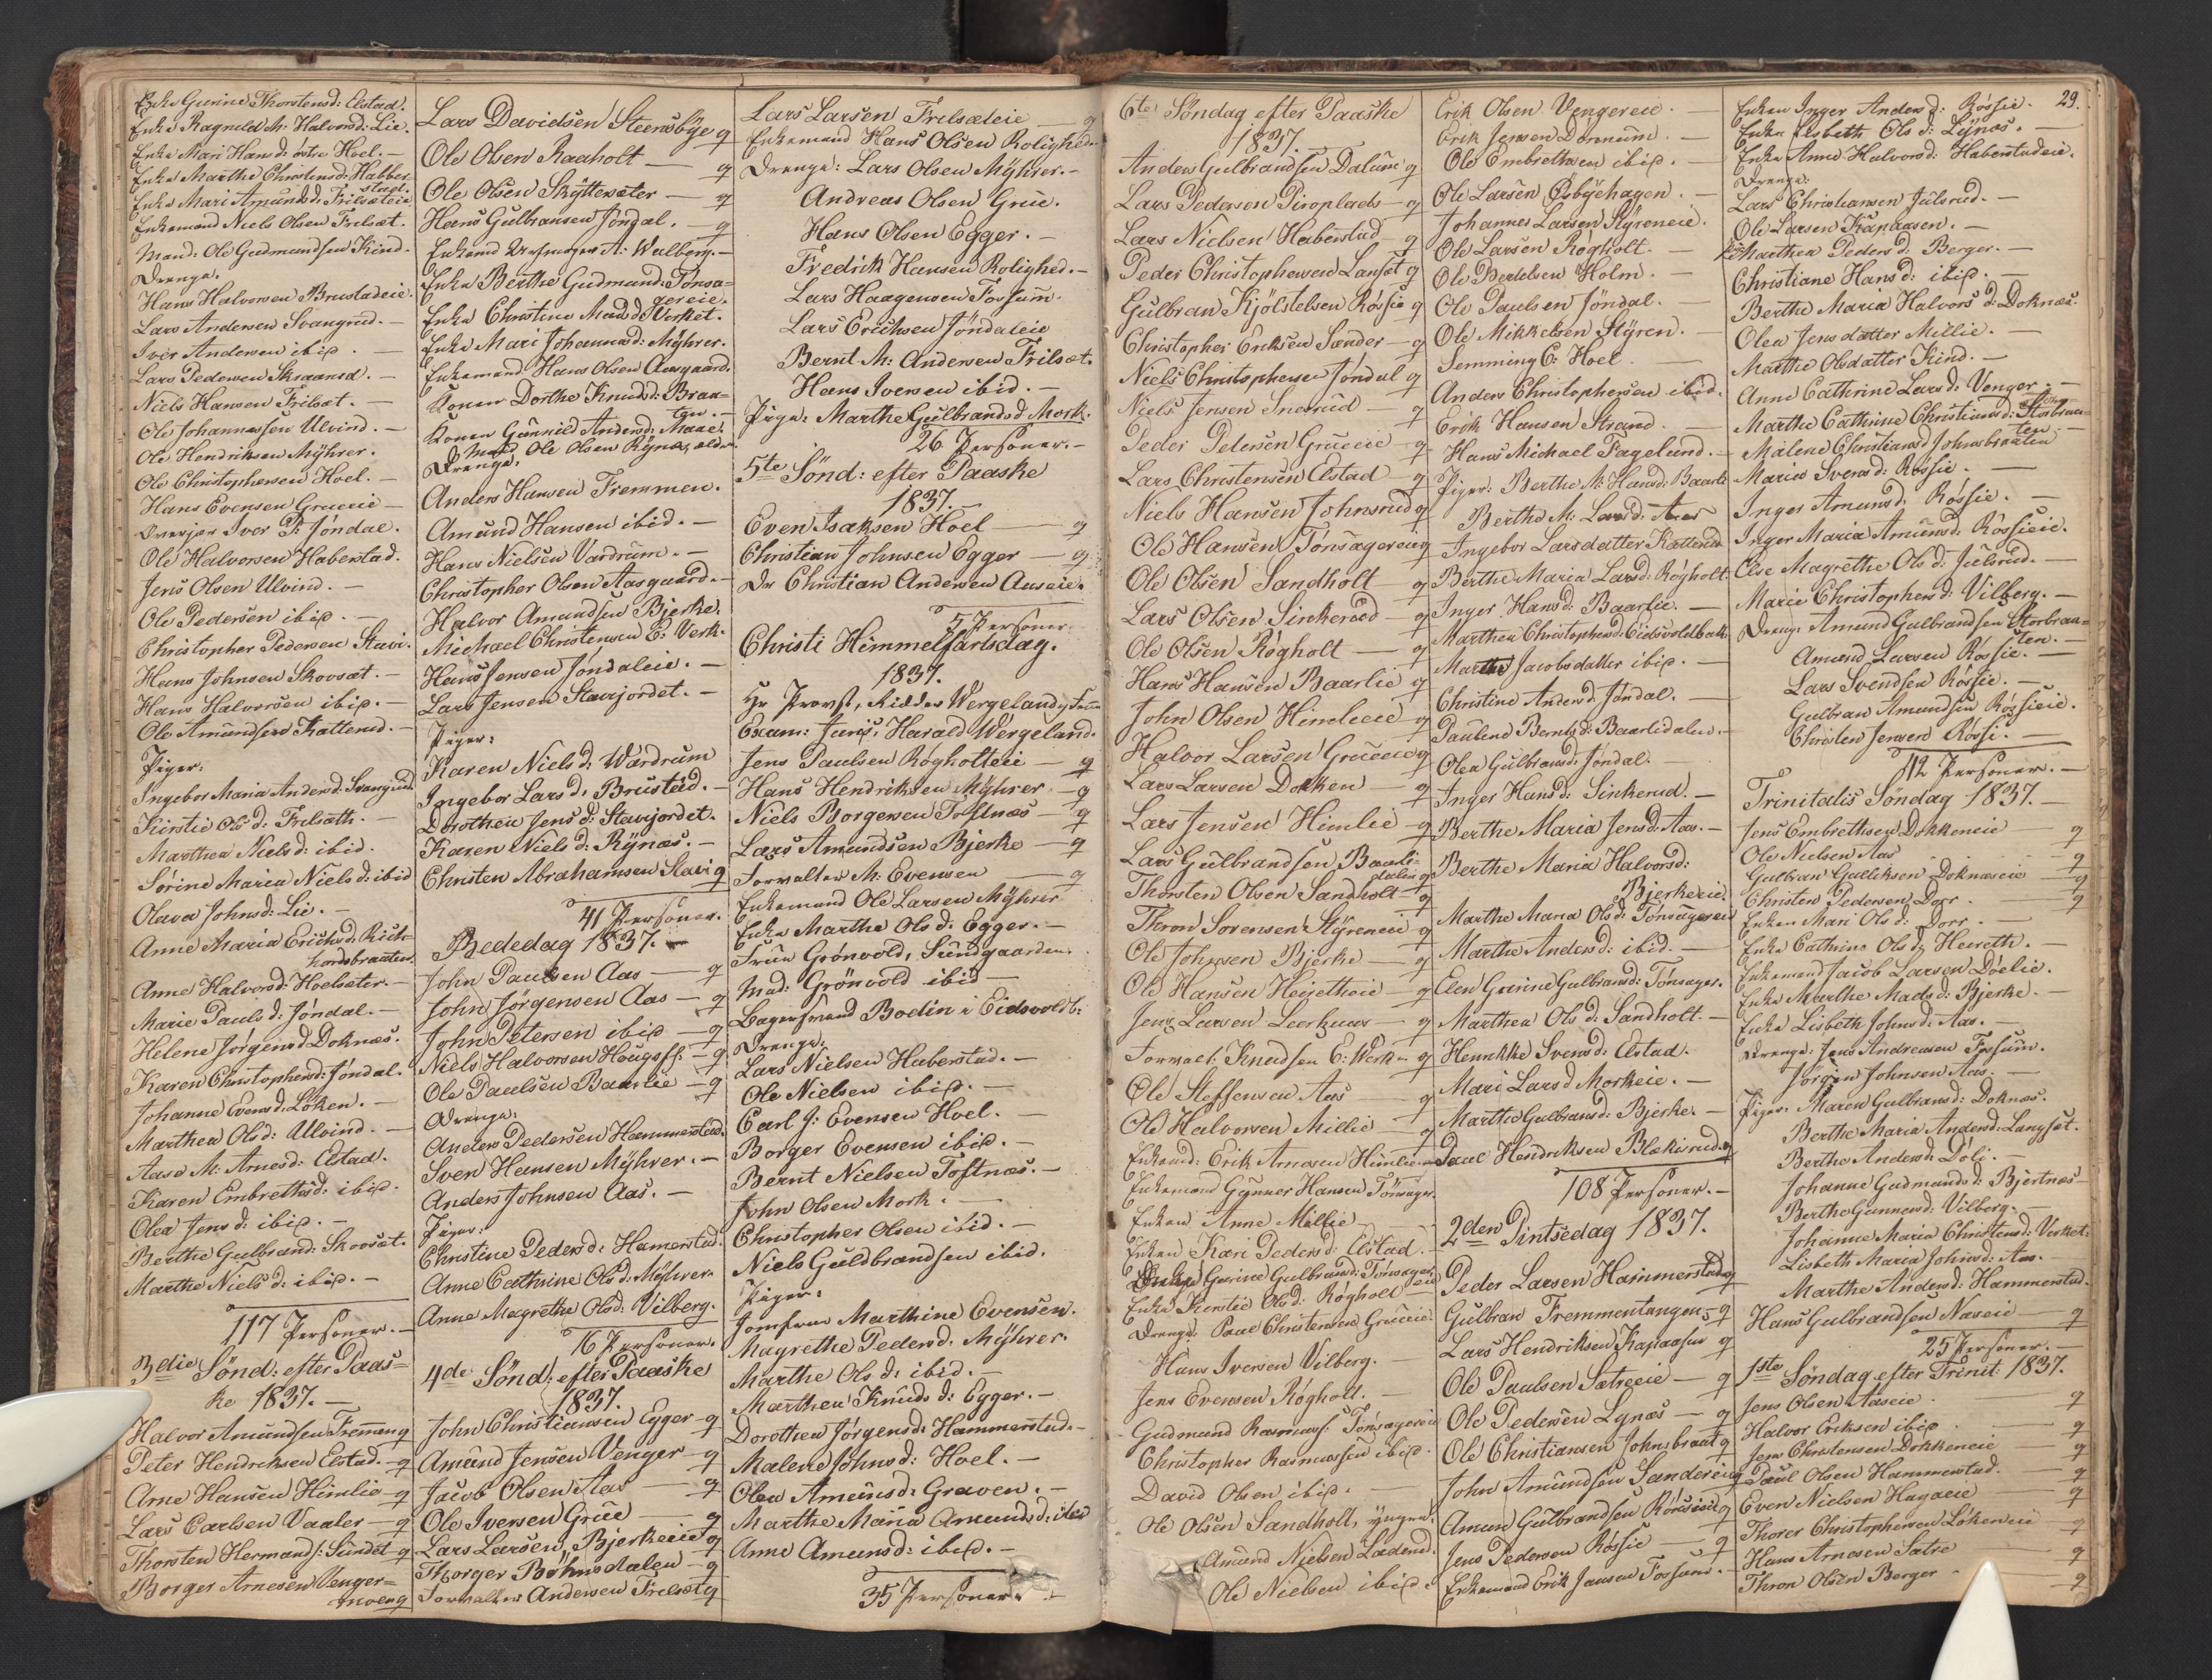 Enke Gurine Thorstensd: Elstad.
Enke Ragnild M: Halvorsd: Lie.
Enke Mari Hansd: østre Hoel. —
Enke Marthe Christensd: Habber-
stad.
Enke Mari Amundsd: Trilsæteie
Enkemand Niels Olsen Trilsæt. —
Mand: Ole Gudmundsen Kind.
Drenge.
Hans Halvorsen Brustadeie.
Lars Andersen Svangrud. —
Iver Andersen ibid. —
Lars Pedersen Skraarud. —
Niels Hansen Trilsæt. —
Ole Johannessen Ulvind. —
Ole Hendriksen Myhrer.
Ole Christophersen Hoel. —
Hans Evensen Grueeie —
Iver P: Jöndal.
Ole Halvorsen Haberstad.
Jens Olsen Ulvind. —
Ole Pedersen ibid. —
Christopher Pedersen Stavi.
Hans Johnsen Skovsæt. —
Hans Halvorsen ibid. —
Ole Amundsen Katterud. —
Piger:
Ingebor Maria Andersd: Svangrud
Kirstie Olsd: Trilsæth. —
Marthea Nielsd: ibid.
Sørine Maria Nielsd: ibid
Olava Johnsd: Lie. —
Anne Maria Erichsd: Rick-
hardsbraaten.
Anne Halvorsd: Hoelsæter. —
Marie Paulsd: Jöndal. —
Helene Jörgensd Doknæs.
Karen Christophersd: Jöndal.
Johanne Evensd: Löken. —
Marthea Olsd: Ulvind. —
Aase M: Arnesd: Elstad.
Karen Embrethsd: ibid.
Olea Jensd: ibid. —
Berthe Gulbrand: Skovsæt.
Marthe Nielsd: ibid. —
117 Personer. —
3die Sönd: efter Paas=
ke 1837. —
Halvor Amundsen Fremmen g
Peter Hendriksen Elstad. — g
Arne Hansen Himlie — g
Lars Carlsen Vaaler — g
Thorsten Hermands: Sundet — g
Borger Arnesen Venger=
moen g
Lars Davidsen Steensbye g
Ole Olsen Raaholt — g
Ole Olsen Skyttesæter — g
Hans Gulbransen Jöndal. — g
A: Walberg. —
Enke Berthe Gudmundsd: Tönsa=
gereie.
Enke Christine Madsd Verket.
Enke Mari Johannesd: Myhrer.
Enkemand Hans Olsen Aasgaard.
Konen Dorthe Knudsd: Braa-
ten. —
Konen Gunnild Andersd:
Mand Ole Olsen Rynæs, ældre
Drenge:
Anders Hansen Fremmen.
Amund Hansen ibid. —
Hans Nielsen Vardrum. —
Christopher Olsen Aasgaard. —
Halvor Amundsen Bjerke.
Michael Christensen E: Verk.
Hans Jensen Jöndaleie. —
Lars Jensen Stavijordet. —
Piger:
Karen Nielsd: Wardrum
Ingebor Larsd: Brustad. —
Dorothea Jensd: Stavijordet.
Karen Nielsd: Rynæs. —
Christen Abrahamsen Stavi g
41 Personer.
Bededag 1837. —
John Paulsen Aas — g
John Jörgensen Aas — g
John Petersen ibid — g
Niels Halvorsen Hougsff: — g
Ole Paulsen Baarlie — g
Drenge:
Anders Pedersen Hammerstad.
Sven Hansen Myhrer. —
Anders Johnsen Aas. —
Piger:
Christine Pedersd: Hamerstad.
Anne Cathrine Olsd: Myhrer.
Anne Magrethe Olsd: Vilberg.
16 Personer.
4de Sönd: efter Paaske
1837.
John Christiansen Egger — g
Amund Jensen Venger — g
Jacob Olsen Aas — g
Ole Iversen Grue — g
Lars Larsen, Bjerkeeie g
Thorger Böhnsdalen — g
Forvalter Andersen Trilsæt g
Lars Larsen Trilsæteie — g
Enkemand Hans Olsen Rolighed. —
Drenge: Lars Olsen Myhrer. —
Andreas Olsen Grue.
Hans Olsen Egger. —
Fredrik Hansen Rolighed. —
Lars Haagensen Fossum.
Lars Erichsen Jöndaleie
Bernt M: Andersen Trilsæt.
Hans Iversen ibid. —
Pige: Marthe Gulbrandsd Mork.
26 Personer. —
5te Sönd: efter Paaske
1837. —
Even Isaksen Hoel — g
Christian Johnsen Egger — g
Dr Christian Andersen Aaseie.
5 Personer.
Christi Himmelfartsdag.
1837.
Hr Provst, Ridder Wergeland, Frue
Exam: Juris: Harald Wergeland.
Jens Paulsen Rögholteie — g
Hans Hendriksen Myhrer — g
Niels Borgersen Toftnæs — g
Lars Amundsen Bjerke — g
Forvalter M: Evensen — g
Enkemand Ole Larsen Myhrer
Enke Marthe Olsd: Egger. —
Frue Grönvold, Sundgaarden.
Mad: Grönvold ibid —
Bodin i Eidsvoldb:
Drenge:
Lars Nielsen Haberstad. —
Ole Nielsen ibid. —
Carl J: Evensen Hoel. —
Borger Evensen ibid. —
Bernt Nielsen Toftnæs. —
John Olsen Mork. —
Christopher Olsen ibid. —
Niels Guldbrandsen ibid.
Piger:
Jomfrue Marthine Evensen.
Magrethe Pedersd: Myhrer.
Marthe Olsd: ibid. —
Marthea Knudsd: Egger. —
Dorothea Jörgensd: Hammerstad. —
Malene Johnsd: Hoel. —
Olea Amunsd: Graven. —
Marthe Maria Amundsd: ibid
Anne Amunsd: ibid. —
35 Personer. —
6te Söndag efter Paaske
1837. —
Anders Gulbrandsen Dalune g
Lars Pedersen Piroplads — g
Lars Nielsen Haberstad g
Peder Christophersen Langset g
Gulbran Kjölstelsen Røssie g
Christopher Eriksen Sander — g
Niels Christophersen Jöndal g
Niels Jensen Snerud — g
Peder Petersen Grueeie — g
Lars Christensen Elstad — g
Niels Hansen Johnsrud g
Ole Hansen Tönsagereie g
Ole Olsen Sandholt g
Lars Olsen Sinkerud — g
Ole Olsen Røgholt — g
Hans Hansen Baarlie g
John Olsen Himleeie g
Halvor Larsen Grueeie g
Lars Larsen Dokken — g
Lars Jensen Himlie — g
Lars Gulbrandsen Baarli-
dalen g
Thorsten Olsen Sandholt — g
Thron Sörensen Styreneie g
Ole Johnsen Bjerke — g
Ole Hansen Heyetheie — g
Jens Larsen Leerkuus — g
Forvalt: Knudsen E: Værk — g
Ole Steffensen Aas — g
Ole Halvorsen Millie — g
Enkemd: Erik Arnesen Himlie
Enkemand Gunner Hansen Tönsager.
Enken Anne Millie —
Enken Kari Pedersd: Elstad. —
Gurine Gulbransd: Tönsager-
eie
Enke Kirstie Olsd: Røgholt —
Drenge: Paul Christensen Grueeie.
Hans Iversen Vilberg. —
Jens Evensen Røgholt. —
Gudmund Rasmuss: Tönsagereie
Christopher Rasmussen ibid.
David Olsen ibid. —
Ole Olsen Sandholt, yngre.
Amund Nielsen Ladend.
Ole Nielsen ibid.
Erik Olsen Vengereie. —
Erik Jensen Dorrmum. —
Ole Embrethsen ibid. —
Ole Larsen Østbyehagen. —
Johannes Larsen Styreneie.
Ole Larsen Rögholt. —
Ole Bertelsen Holm. —
Ole Paulsen Jöndal. —
Ole Mikkelsen Styren. —
Semming C: Hoel —
Anders Christophersen ibid.
Erik Hansen Strand. —
Hans Michael Fagelund. —
Piger: Berthe M: Hansd: Baarli.
Berthe M: Larsd: Aas
Ingebor Larsdatter Katterud
Berthe Maria Larsd: Røgholt.
Inger Hansd: Baarlie. —
Marthea Christophersd: Eidsvoldbak.
Marthe Jacobsdatter ibid. —
Christine Andersd: Jöndal. —
Pauline Berntsd: Baarlidalen. —
Olea Gulbransd: Jöndal. —
Inger Hansd: Sinkerud. —
Berthe Maria Jensd: Aas. —
Berthe Maria Halvorsd:
Bjerkeeie.
Marthe Maria Olsd: Tönsagereie
Marthe Andersd: ibid. —
Elen Gurine Gulbransd: Tönsager.
Marthea Olsd: Sandholt. —
Henrikke Svensd: Elstad.
Mari Larsd Morkeie. —
Marthe Gulbransd: Bjerke. —
Paul Hendriksen Blekisrud g
108 Personer. —
2den Pintsedag 1837.
Peder Larsen Hammerstad g
Gulbran Fremmentangen — g
Lars Hendriksen Kapaasen g
Ole Paulsen Sætreeie — g
Ole Pedersen Lynæs — g
Ole Christiansen Johnsbraat g
John Amundsen Sandereie g
Amun Gulbrandsen Rörsieie g
Jens Pedersen Røssie — g
Enkemand Erik Jansen Fossund. —
29.
Enken Inger Andersd: Rössie. —
Enken Elsbeth Olsd: Lynæs. —
Enke Anne Halvorsd: Haberstadeie.
Drenge:
Lars Christiansen Julsrud. —
Ole Larsen Kapaasen. —
Marthea Pedersd: Berger. —
Christiane Hansd: ibid. —
Berthe Maria Halvorsd: Doknæs.
Olea Jensdatter Millie. —
Marthe Olsdatter Kind. —
Anne Cathrine Larsd: Venger. —
Marthe Cathrine Christiansd: Storbraa-
ten —
Malene Christiansd Johnsbraaten
Maria Svensd: Røssie. —
Inger Amunsd: Røssie. —
Inger Maria Amunsd: Rössieie.
Else Magrethe Olsd: Julsrud. —
Marie Christophersd: Vilberg. —
Dreng: Amund Gulbrandsen Storbraa-
ten. —
Amund Larsen Røssie. —
Lars Svendsen Røssie. —
Gulbran Amundsen Røssieie.
Christen Jensen Røssi. —
42 Personer. —
Trinitatis Söndag 1837. —
Jens Embrethsen Dokkeneie — g
Ole Nielsen Aas — g
Gulbran Gulliksen Doknæseie — g
Christen Pedersen Dorr. — g
Enken Mari Olsd: Dorr. —
Enke Cathrine Olsd: Heireth. —
Enkemand Jacob Larsen Döelie.
Enke Marthe Madsd: Bjerke. —
Enke Lisbeth Johnsd: Aas. —
Drenge: Jens Andreasen Fossum.
Jörgen Johnsen Aas. —
Piger: Maren Gulbransd: Doknæs.
Berthe Maria Andersd: Langset.
Berthe Andersd: Döli. —
Johanne Gudmundsd: Bjertnæs —
Berthe Gunnersd: Vilberg. —
Johanne Maria Christensd: Verket.
Lisbeth Maria Johnsd: Aas.
Marthe Andersd: Hammerstad.
Hans Gulbrandsen Næseie — g
25 Personer. —
1ste Söndag efter Trinit: 1837.
Jens Olsen Aaseie — g
Halvor Eriksen ibid — g
Jens Christensen Dokkeneie — g
Paul Olsen Hammerstad. — g
Even Nielsen Hagaeie — g
Thorer Christophersen Lökeneie — g
Hans Arnesen Sætre — g
Thron Olsen Berger — g